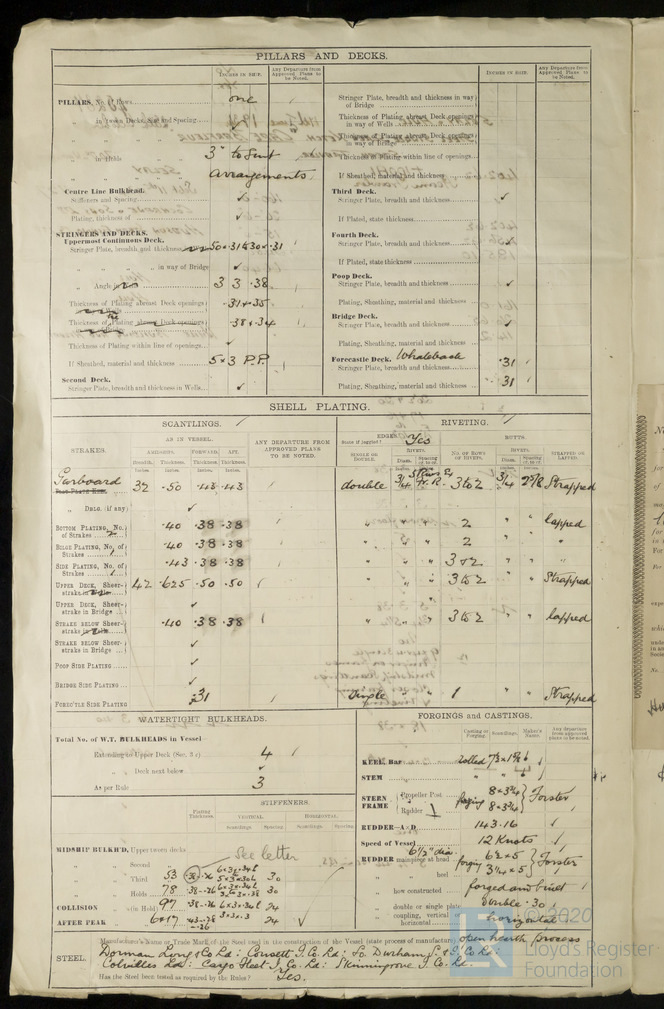 PILLARS AND DECKS.
INCHES IN SHIP.
Any Departure from Approved Plans to be Noted.
PILLARS, No. of Rows one
in 'Tween Decks, Size and Spacing
in Holds 3" to Suit
arrangements
Centre Line Bulkhead.
Stiffeners and Spacing
Plating, thickness of
STRINGERS AND DECKS.
Uppermost Continuous Deck.
Stringer Plate, breadth and thickness 50 × .31 to 30 × .31
in way of Bridge
Angle 3 3 .38
Thickness of Plating abreast Deck openings .31 + .35
Thickness of Plating abreast Deck openings .38 + .34
Thickness of Plating within line of openings
If Sheathed, material and thickness 5 × 3 P.P.
Second Deck.
Stringer Plate, breadth and thickness in Wells
INCHES IN SHIP.
Any Departure from Approved Plans to be Noted.
Stringer Plate, breadth and thickness in way of Bridge
Thickness of Plating abreast Deck openings in way of Wells
Thickness of Plating abreast Deck openings in way of Bridge
Thickness of Plating within line of openings
If Sheathed, material and thickness
Third Deck.
Stringer Plate, breadth and thickness
If Plated, state thickness
Fourth Deck.
Stringer Plate, breadth and thickness
If Plated, state thickness
Poop Deck.
Stringer Plate, breadth and thickness
Plating, Sheathing, material and thickness
Bridge Deck.
Stringer Plate, breadth and thickness
Plating, Sheathing, material and thickness
Forecastle Deck. Whaleback
Stringer Plate, breadth and thickness .31
Plating, Sheathing, material and thickness .31
SHELL PLATING.
SCANTLINGS.
RIVETING.
STRAKES.
AS IN VESSEL.
ANY DEPARTURE FROM APPROVED PLANS TO BE NOTED.
EDGES. Yes
State if joggled?
BUTTS.
AMIDSHIPS. FORWARD. AFT.
Breadth. Thickness. Thickness. Thickness.
SINGLE OR DOUBLE.
RIVETS.
Diam. Spacing cr. to cr.
No. OF ROWS OF RIVETS.
RIVETS.
Diam. Spacing cr. to cr.
STRAPPED OR LAPPED.
Garboard 32 .50 .43 .43 double 3/4 3 to 2 3/4 2 5/8 Strapped
DBLG. (if any)
BOTTOM PLATING, No. of Strakes .40 .38 .38 " " " 2 " " lapped
BILGE PLATING, No. of Strakes .40 .38 .38 " " " 2 " " "
SIDE PLATING, No. of Strakes .43 .38 .38 3 & 2 " " "
UPPER DECK, Sheer-strake 42 .625 .50 .50 " " " 3 & 2 " " Strapped
UPPER DECK, Sheer-strake in Bridge
STRAKE BELOW Sheer-strake .40 .38 .38 " " " 3 & 2 " " lapped
STRAKE BELOW Sheer-strake in Bridge
POOP SIDE PLATING
BRIDGE SIDE PLATING
FORE'C'TLE SIDE PLATING .31 Single " " 1 " " Strapped
WATERTIGHT BULKHEADS.
Total No. of W.T. BULKHEADS in Vessel
Extending to Upper Deck (Sec. 3 c) 4
Deck next below
As per Rule 3
Plating Thickness.
STIFFENERS.
VERTICAL. HORIZONTAL.
Scantlings. Spacing. Scantlings. Spacing.
See letter
MIDSHIP BULKH'D, Upper 'tween decks
Second "
Third " 53 30
Holds " 78 30
COLLISION (in Hold) 97 24
AFTER PEAK 24
FORGINGS AND CASTINGS.
Casting or Forging. Scantlings. Maker's Name. Any departure from approved plans to be noted.
KEEL, Bar rolled
STEM " "
STERN FRAME
Propeller Post 8 × 3 3/4
Rudder " forging 8 × 3 3/4 Forster
RUDDER—A×D 143.16
Speed of Vessel 12 Knots
RUDDER mainpiece at head 6 1/2" dia. forging 6 1/2 × 5
heel 3 1/4 × 5 Forster
how constructed forged and built
double or single plate double .30
coupling, vertical or horizontal horizontal
STEEL. Manufacturer's Name or Trade Mark of the Steel used in the construction of the Vessel (state process of manufacture) open hearth process
Dorman Long & Co Ld: Consett I. Co. Ld: So. Durham S. & I. Co Ld:
Colvilles Ld: Cargo Fleet I. Co. Ld: Skinningrove I. Co. Ld.
Has the Steel been tested as required by the Rules? Yes.
© 2020
Lloyd's Register
Foundation